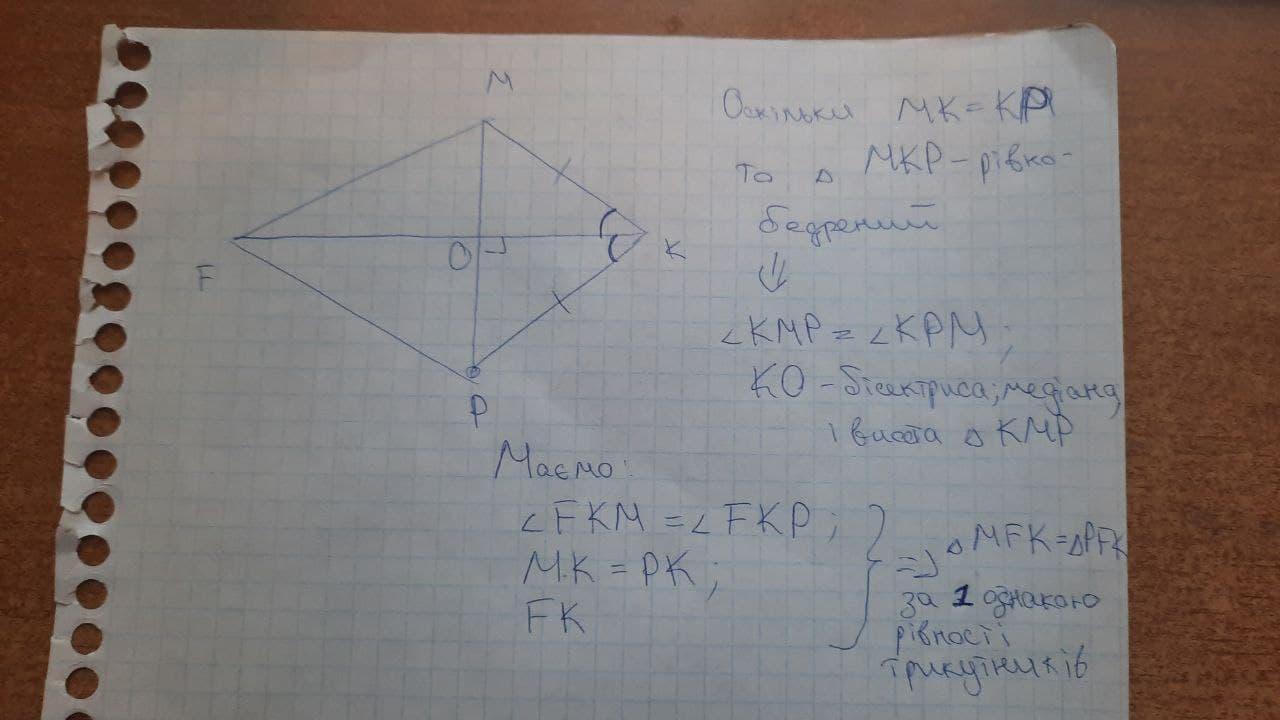 M
F
O
K
P
Оскільки MK = KP
то △ MKP – рівно-
бедрений
⇓
∠KMP = ∠KPM ;
KO – бісектриса; медіана,
і висота △ KMP
Маємо:
∠FKM = ∠FKP ;
MK = PK ;
FK
=> △ MFK = △PFK
за 1 ознакою
рівності
трикутників